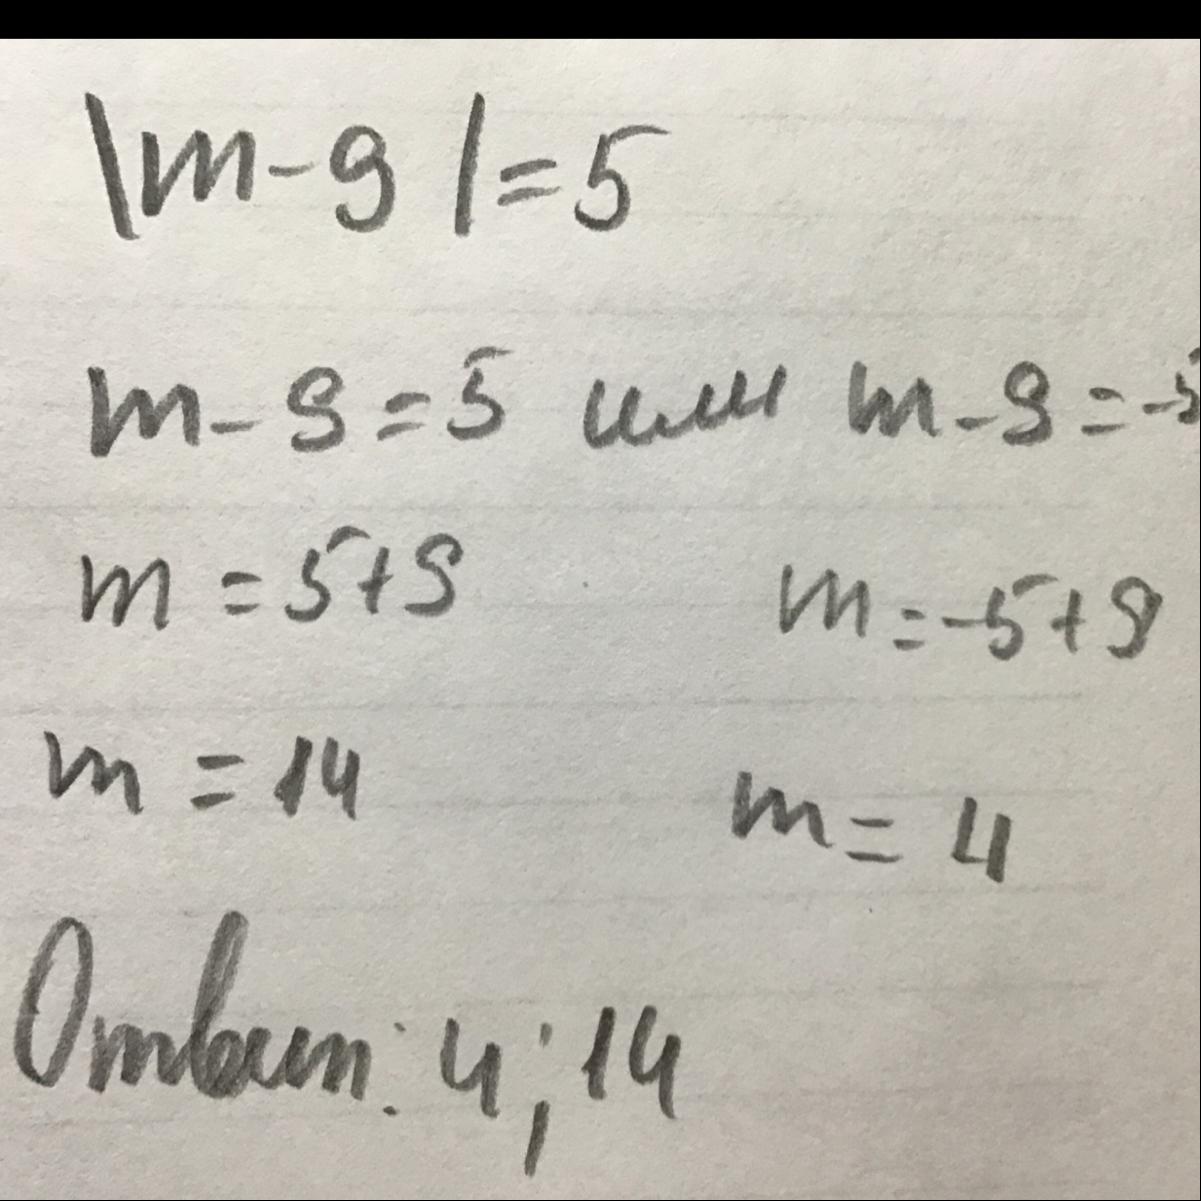 |m-9|=5
m-9=5 или m-9=-5
m=5+9 m=-5+9
m=14 m=4
Ответ: 4; 14